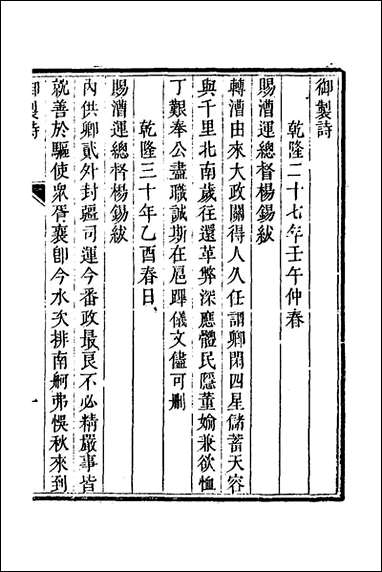 御製詩
乾隆二十七年壬午仲春
賜漕運總督楊錫紱
轉漕由來大政關得人久任謂卿閑四星儲蓄天容
與千里北南歲往還革弊深應體民隱董媮兼欲恤
丁艱奉公盡職誠斯在扈蹕儀文儘可刪
乾隆三十年乙酉春日
賜漕運總督楊錫紱
內供卿貳外封疆司運今番政最良不必精嚴事皆
就善於驅使衆胥襄卽今水次排南舸弗悞秋來到
御製詩
一